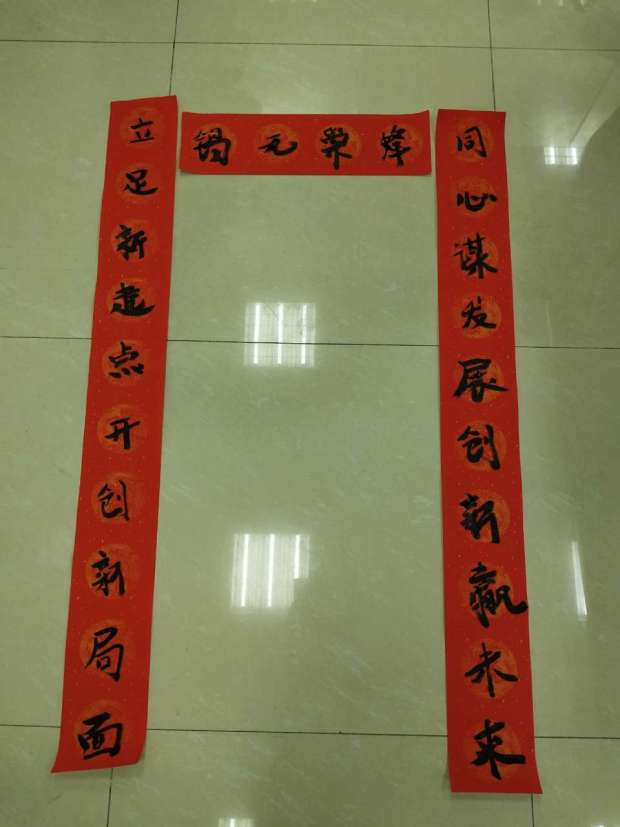 元荣
同心谋发展创新赢未来
立足新起点开创新局面